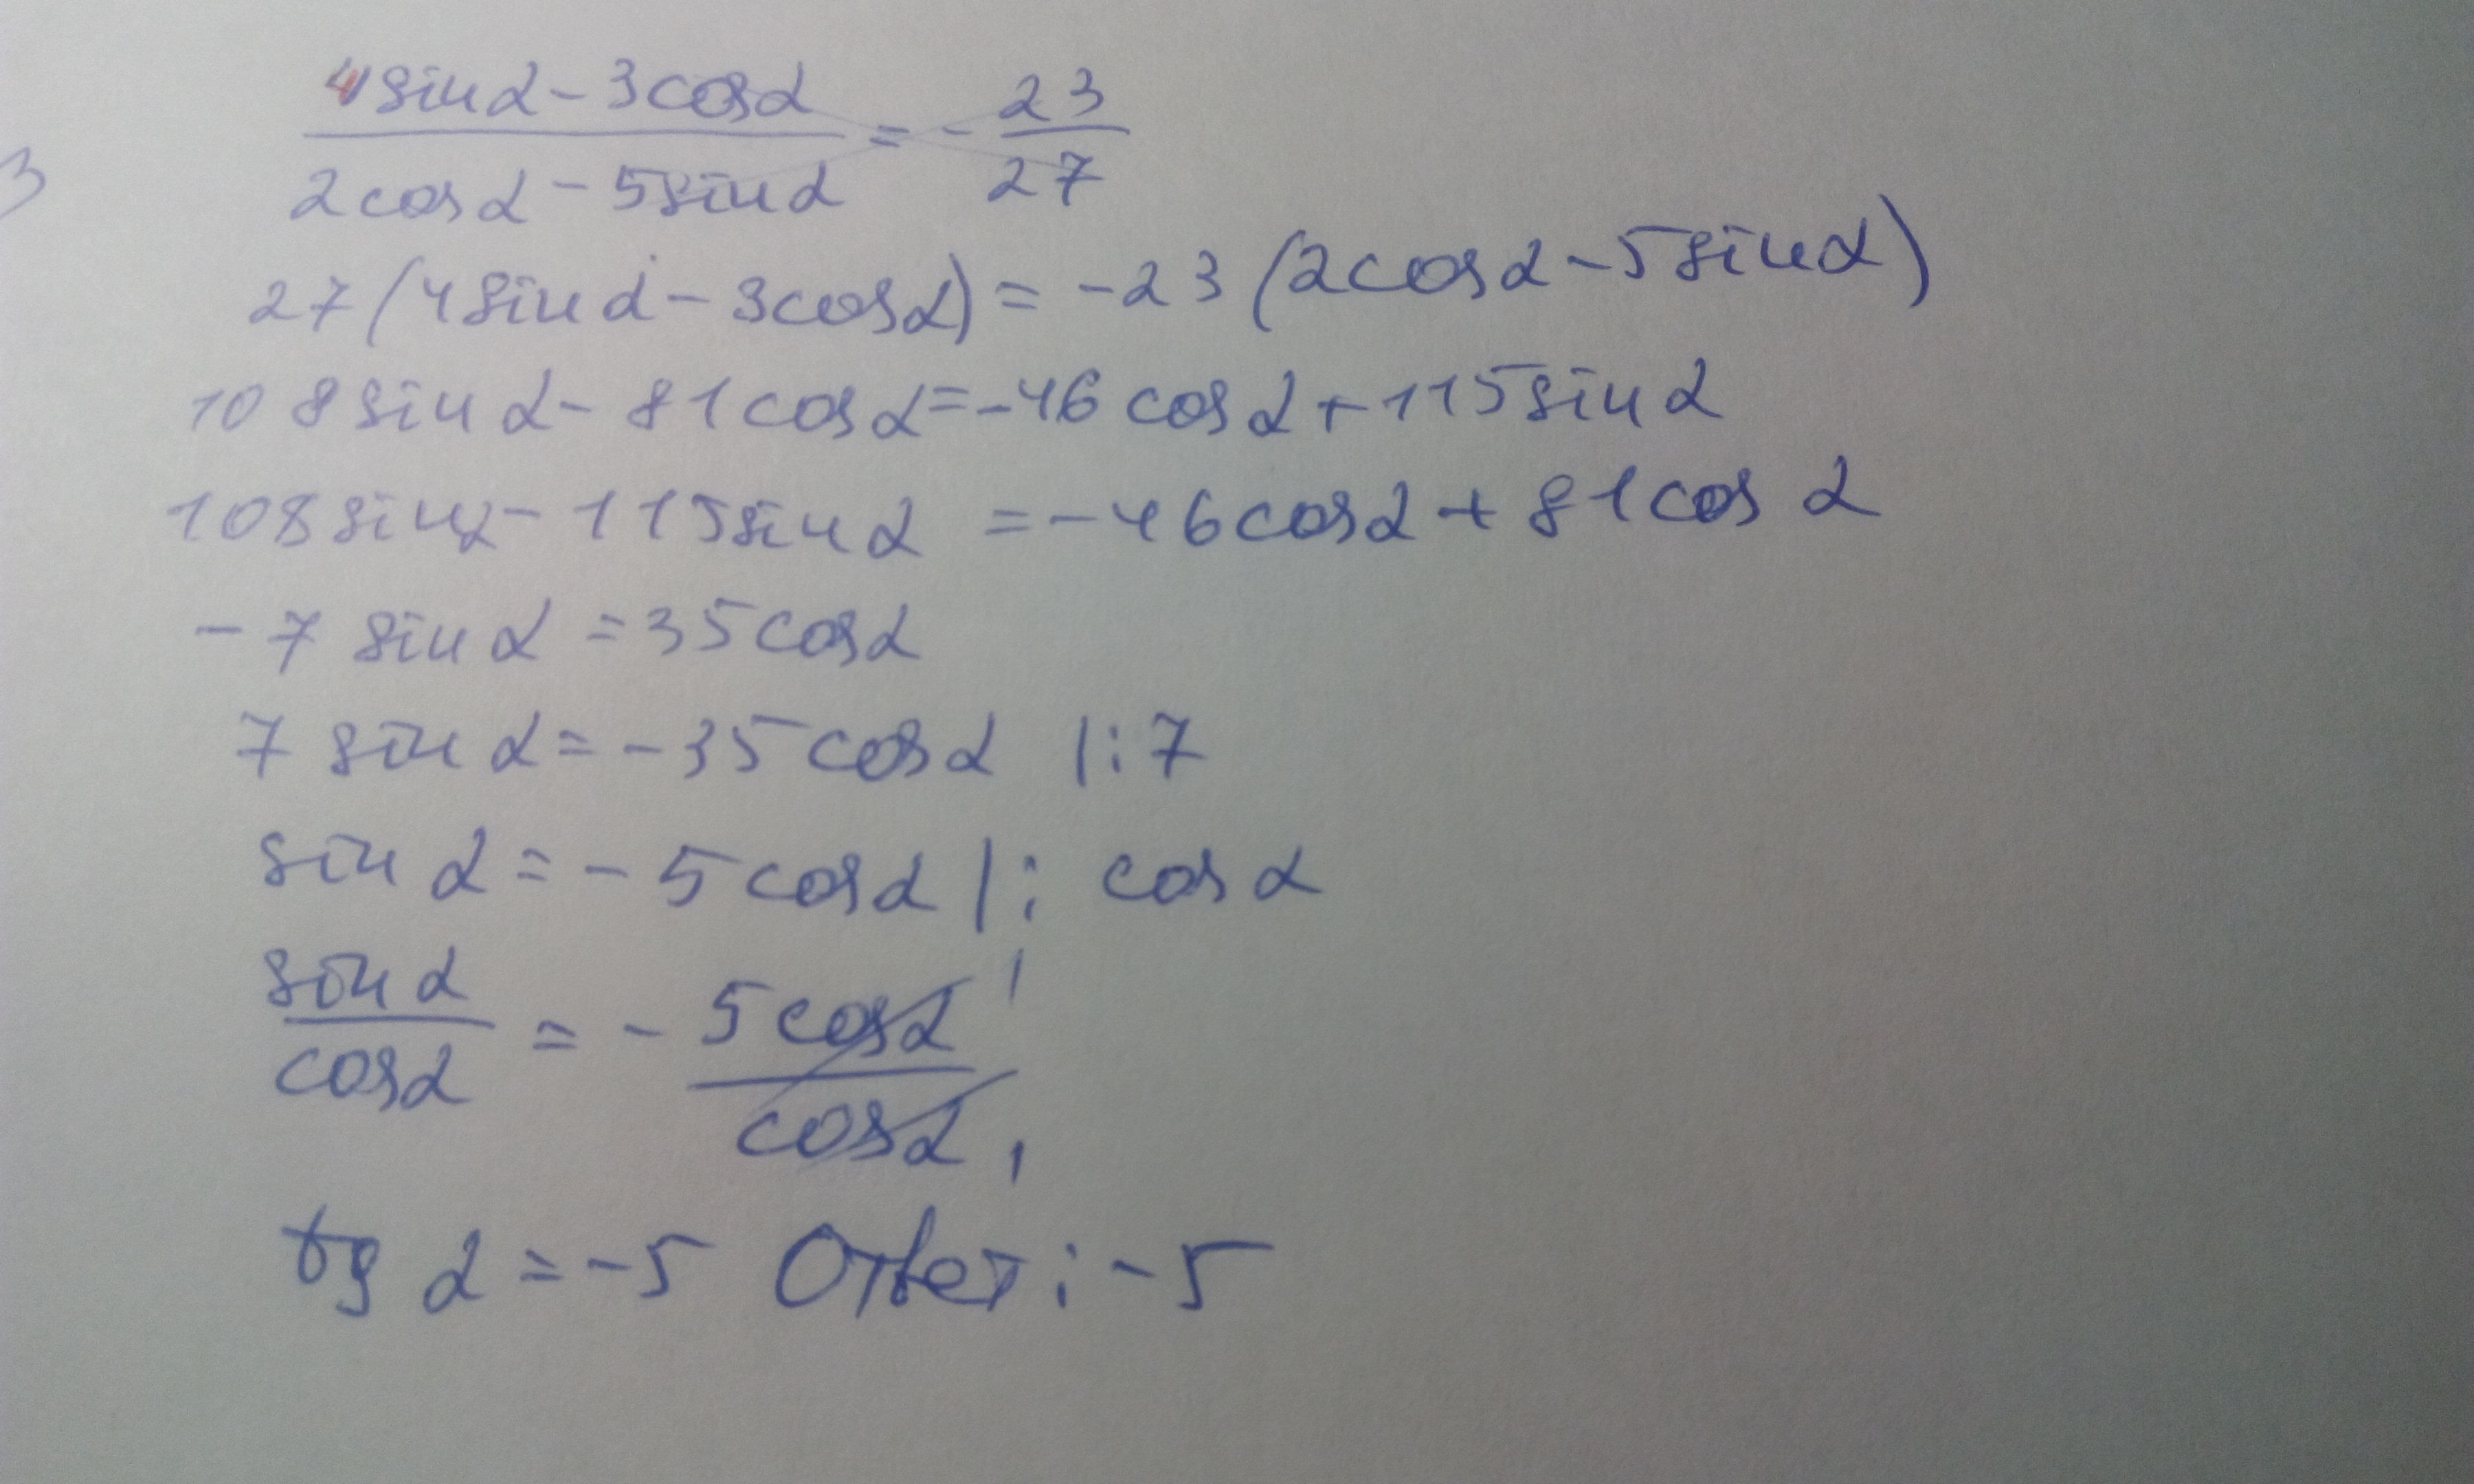 3
4sinα - 3cosα / 2cosα - 5sinα = - 23/27
27(4sinα - 3cosα) = -23(2cosα - 5sinα)
108sinα - 81cosα = -46cosα + 115sinα
108sinα - 115sinα = -46cosα + 81cosα
-7 sinα = 35cosα
7 sinα = -35cosα |:7
sinα = -5cosα |: cosα
sinα/cosα = - 5cosα 1/cosα 1
tg α = -5 Ответ: -5